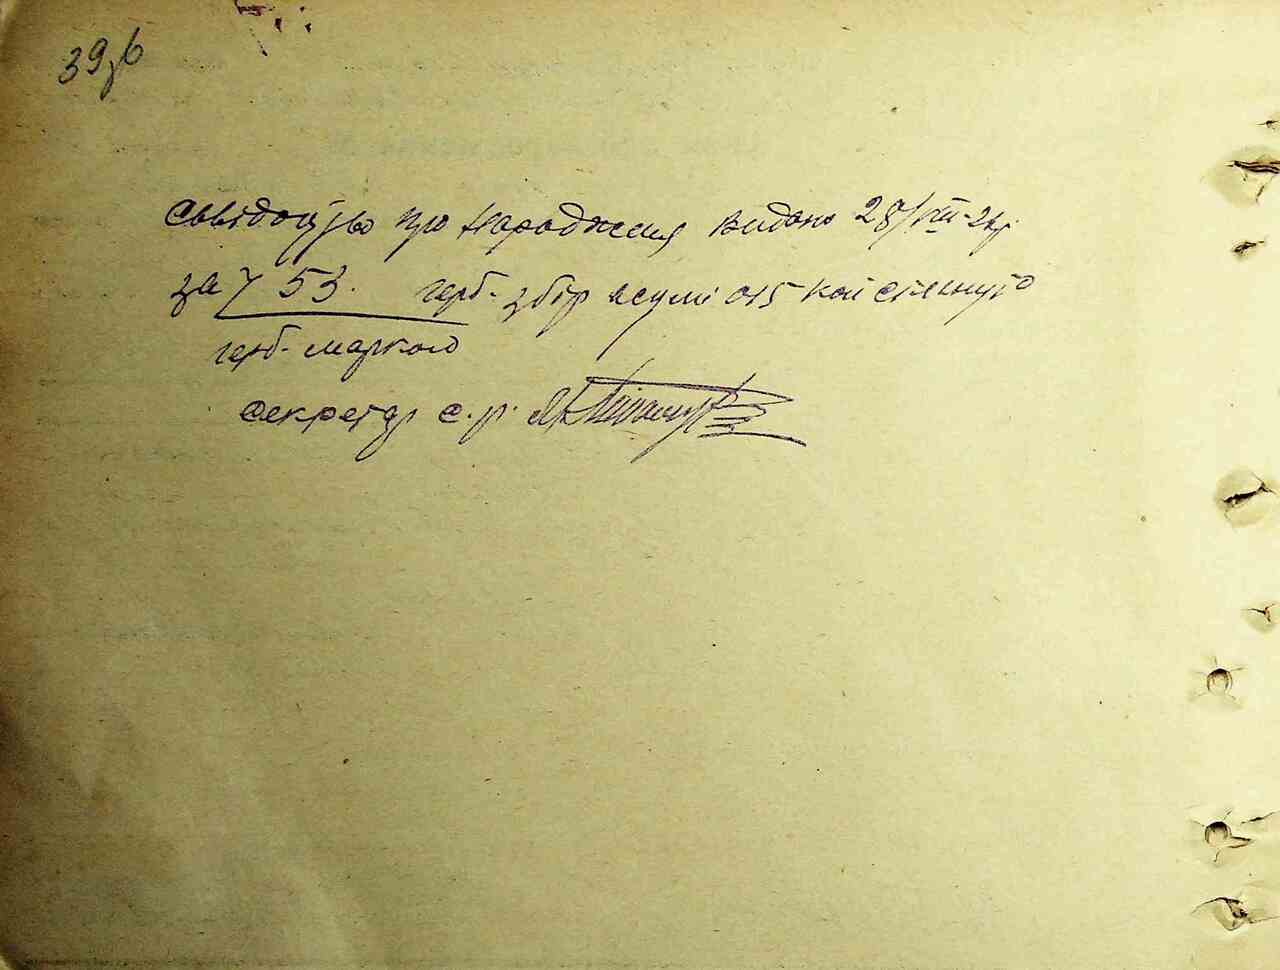 39зв
Свѣдоцтво про Народження Видано 28/VIII-2 р
за ч 53. герб. збір в сумі 015 коп стягнуто
герб. маркою
Секретар с.р.